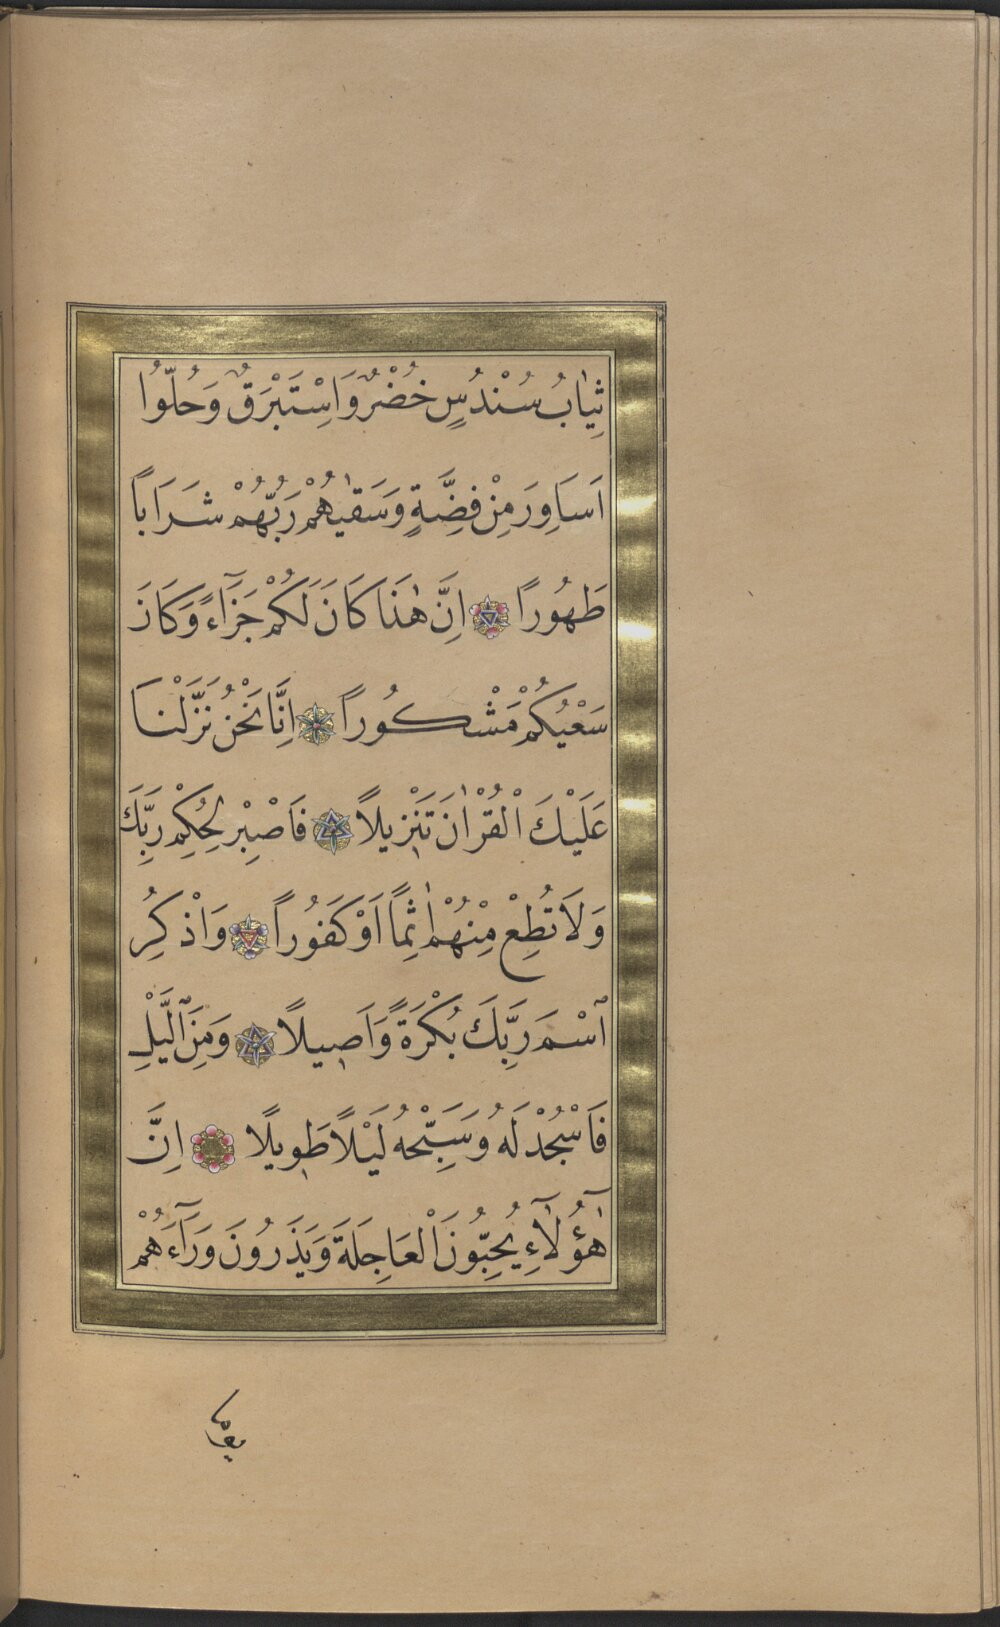 ثِيَابُ سُنْدُسٍ خُضْرٌ وَاِسْتَبْرَقٌ وَحُلُّوا
اَسَاوِرَ مِنْ فِضَّةٍ وَسَقٰيهُمْ رَبُّهُمْ شَرَاباً
طَهُورًا اِنَّ هٰذَا كَانَ لَكُمْ جَزَآءً وَكَانَ
سَعْيُكُمْ مَشْكُوراً اِنَّا نَحْنُ نَزَّلْنَا
عَلَيْكَ الْقُرْاٰنَ تَنْزِيلاً فَاصْبِرْ لِحُكْمِ رَبِّكَ
وَلَا تُطِعْ مِنْهُمْ اٰثِماً اَوْ كَفُوراً وَاذْكُرِ
اسْمَ رَبِّكَ بُكْرَةً وَاَصِيلاً وَمِنَ الَّيْلِ
فَاسْجُدْ لَهُ وَسَبِّحْهُ لَيْلاً طَوِيلاً اِنَّ
هٰٓؤُلَآءِ يُحِبُّونَ الْعَاجِلَةَ وَيَذَرُونَ وَرَآءَهُمْ